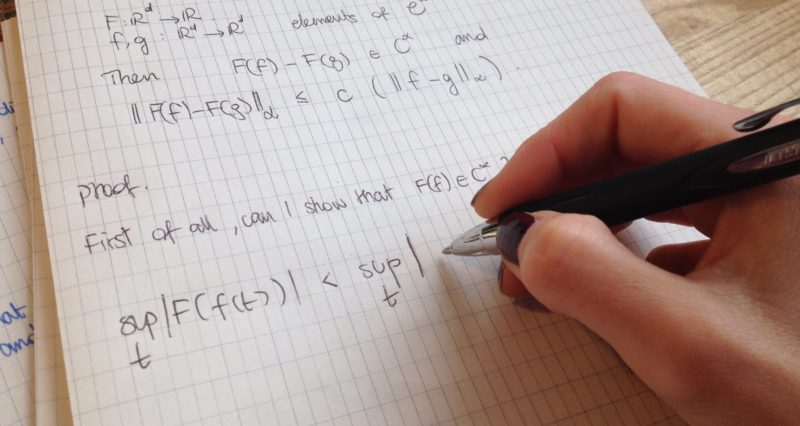 F: ℝᵈ → ℝ
f, g : ℝᵈ → ℝᵈ elements of
Then F(f) – F(g) ∈ Cᵅ and
‖F(f) – F(g)‖α ≤ C (‖f – g‖α).
proof.
First of all, can I show that F(f) ∈ Cᵅ ?
sup |F(f(t))| < sup |
t t
at
and